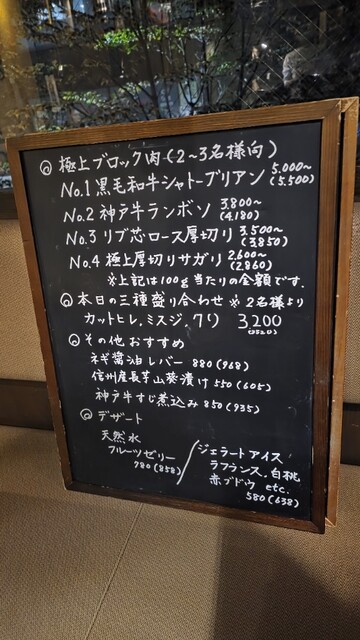 極上ブロック肉(2〜3名様向)
No.1 黒毛和牛シャトーブリアン 5,000〜 (5,500)
No.2 神戸牛ランボソ 3,800〜 (4,180)
No.3 リブ芯ロース厚切り 3,500〜 (3,850)
No.4 極上厚切りサガリ 2,600〜 (2,860)
※上記は100g当たりの金額です.
本日の三種盛り合わせ ※2名様より
カットヒレ.ミスジ.クリ 3,200 (3520)
その他おすすめ
ネギ醤油レバー 880(968)
信州産長芋山葵漬け 550(605)
神戸牛すじ煮込み 850(935)
デザート
天然水
フルーツゼリー
780(858)
ジェラートアイス
ラフランス.白桃
赤ブドウ etc.
580(638)